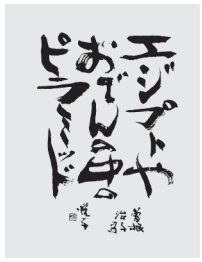 エジプトや
おでんの中の
ピラミッド